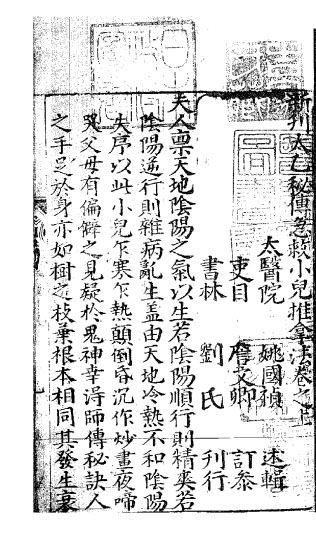 新刋太乙秘傳急救小兒推拿法卷之上
太醫院 姚國禎 述輯
吏目 詹文卿 訂叅
書林 劉氏 刊行
夫人禀天地陰陽之氣以生若陰陽順行則精爽若
陰陽逆行則雜病亂生盖由天地冷熱不和陰陽
失序以此小兒乍寒乍熱顛倒昏沉作炒晝夜啼
哭父母有偏僻之見疑於鬼神幸淂師傳秘訣人
之手足於身亦如樹之枝葉根本相同其發生衰